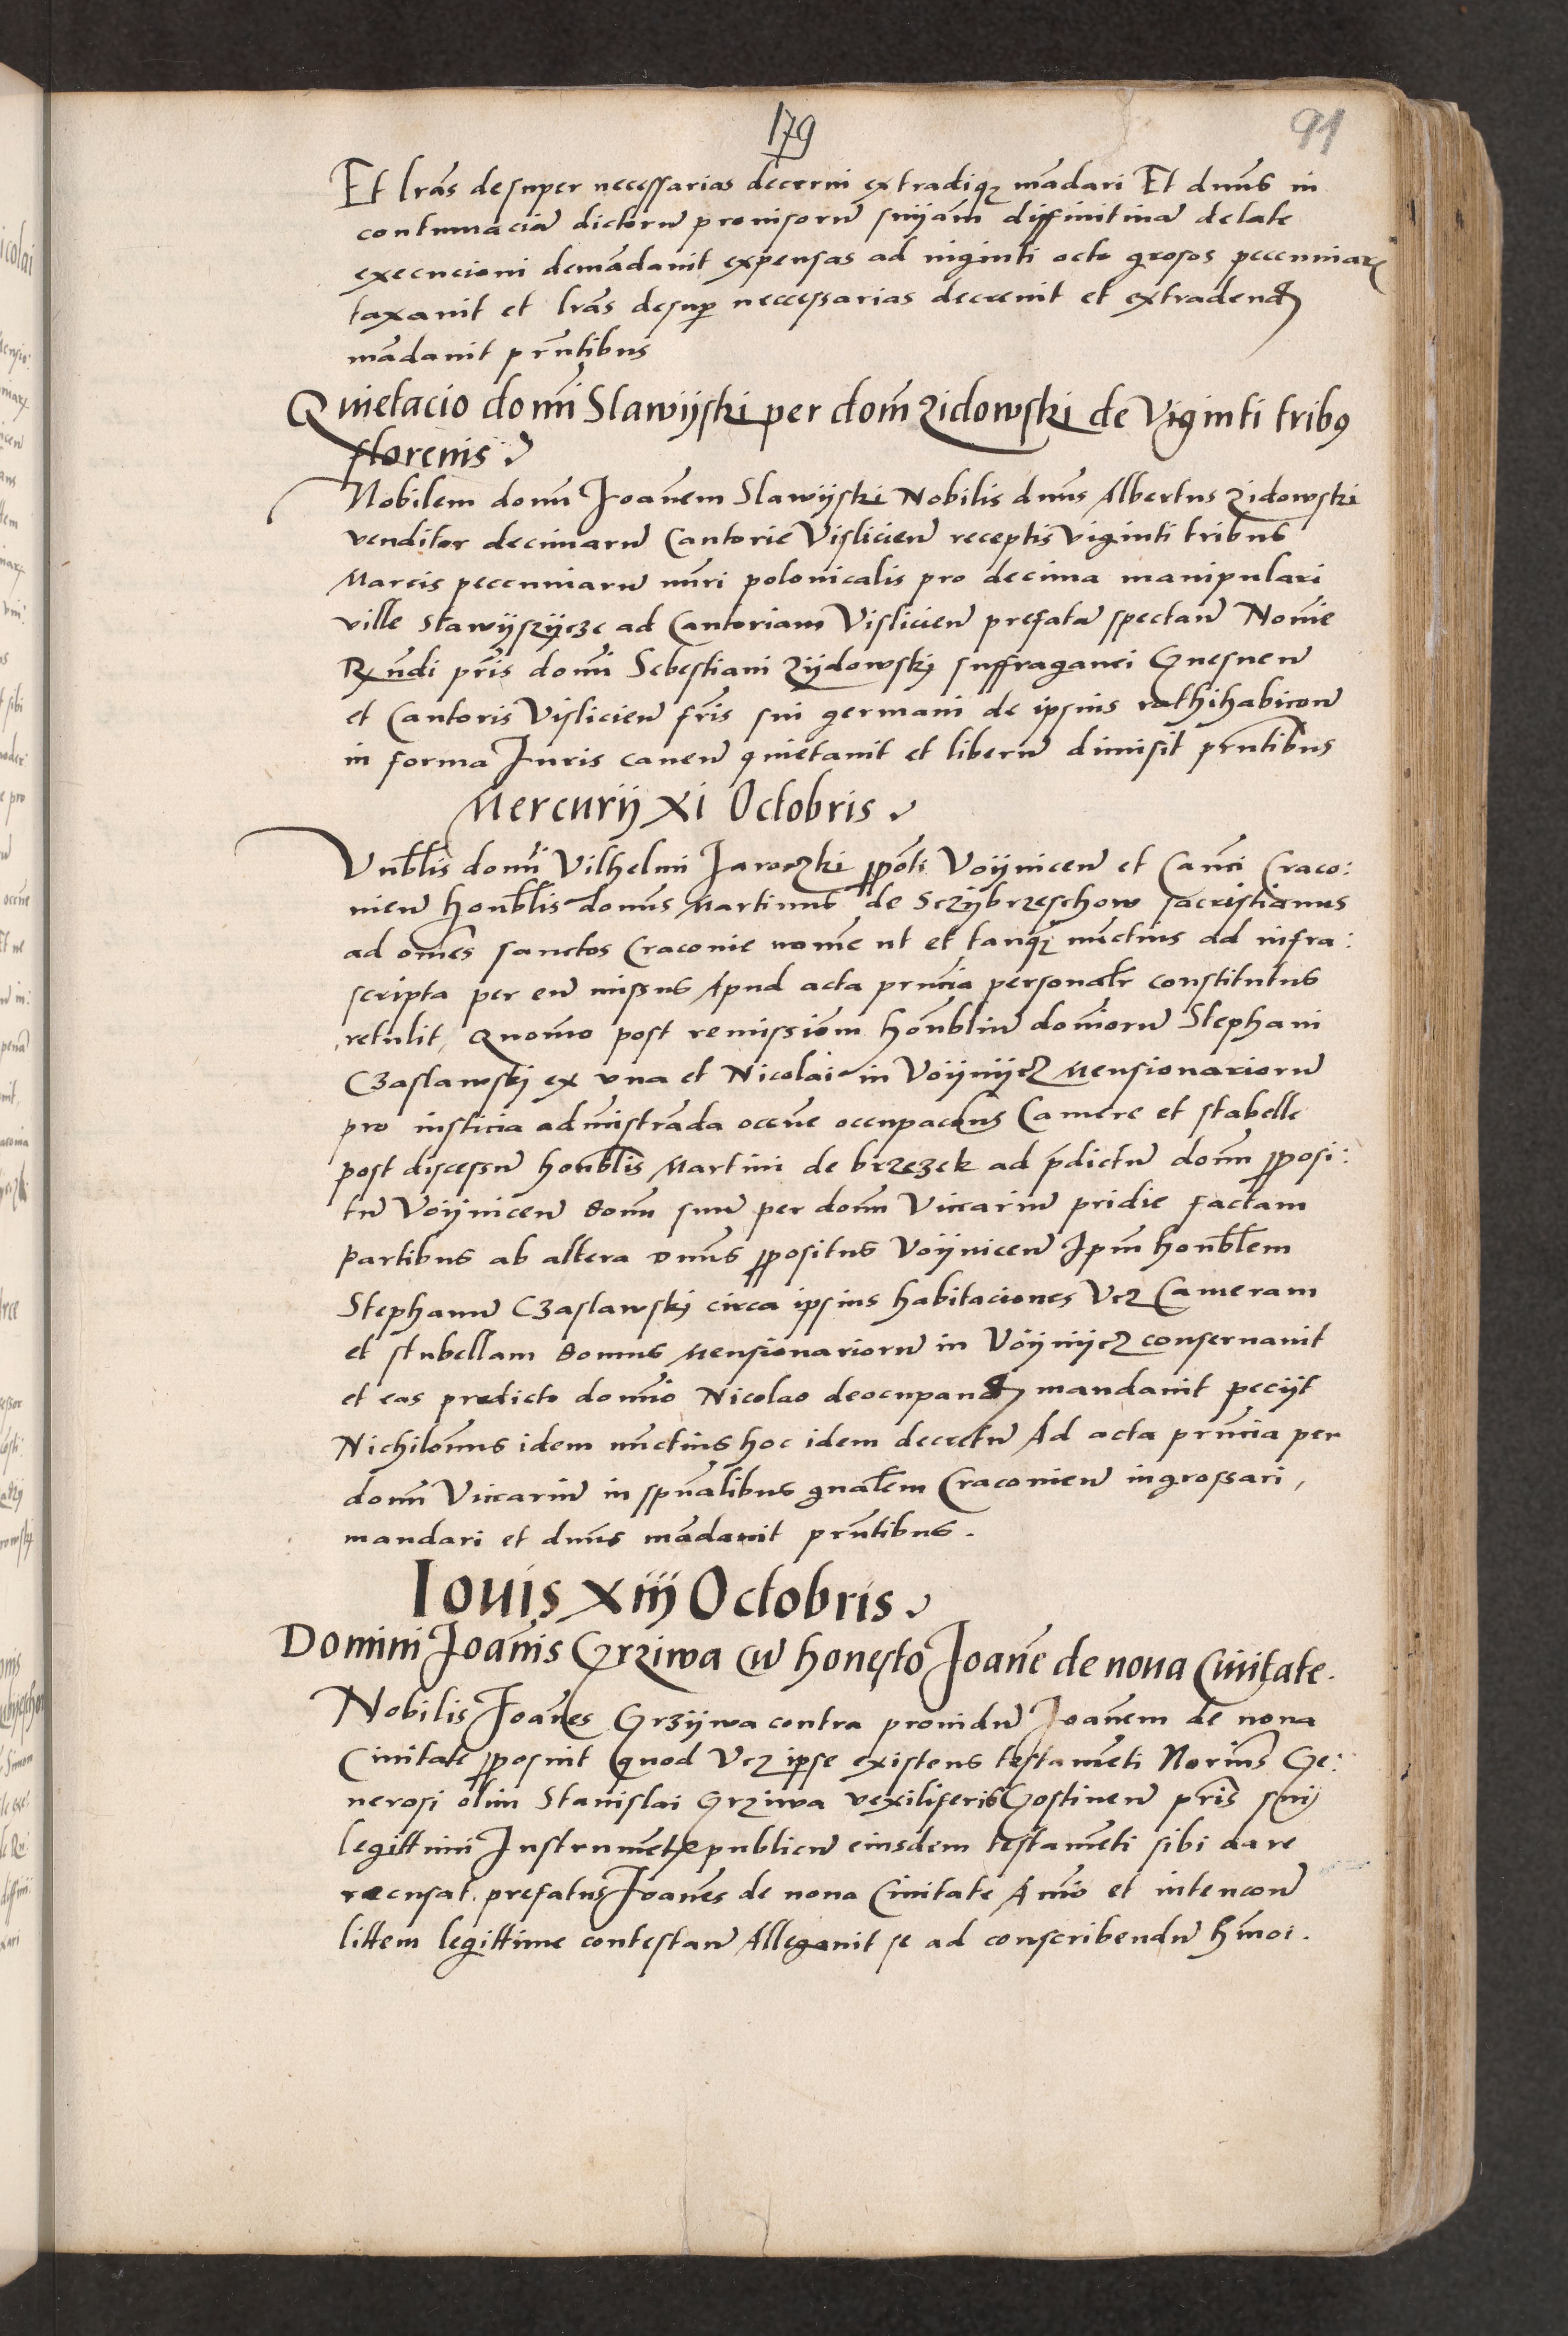 179
91
Et lrãs desuper necessarias decerni extradiqz mãdari Et dnũs in
contumaciã dictorũ prouisorũ snijam diffinitiuã delate
execucioni demãdauit expensas ad uiginti octo grosos pecuniarz
taxauit et lrãs desup necessarias decreuit et extradend
mãdauit prñtibus
Quietacio domĩ Slawijski per dom̃ Zidowski de Viginti tribꝯ
florenis
Nobilem donũ Joañem Slawijski Nobilis dnũs Albertus Zidowski
venditor decimarũ Cantorie Visliciens̃ receptis Viginti tribus
Marcis pecuniarũ nũri polonicalis pro decima manipulari
ville Stawijszijcze ad Cantoriam Visliciens̃ prefatã spectañ Noĩe
Rx̃ndi pr̃is domĩ Sebestiani Zijdowskj suffraganei Gnesneñ
et Cantoris Visliciens̃ fr̃is sui germani de ipsius rathihabicoñ
in forma Juris caueñ quietauit et liberũ dimisit prñtibus
Mercurij xi Octobris
Vnb̃lis domĩ Vilhelmi Jaroczki ppõti Voijniceñ et Cañci Craco:
nieñ honb̃lis domũs Martinus de Sczijbrzeschow sacristianus
ad oñies sanctos Craconie nom̃e ut et tanqz nũctius ad infra:
scripta per eũ missus Apud acta prñcia personalr constitutus
retulit, Quom̃o post remissiõm honb̃liũ dom̃orũ Stephani
Czaslawskj ex vna et Nicolai in Voijnijcz Mensionariorũ
pro iusticia admĩstrãda occẽne occupacõnis Camere et stabelle
post discessũ honb̃lis Martini de brzezek ad p̃dictũ domũ pposi:
tũ Voijniceñ domũ suũ per domũ Viccariũ pridie factam
partibus ab altera Dnũs ppositus Voijniceñ Ipm̃ honb̃lem
Stephanũ Czaslawskj circa ipsius habitaciones Vcz Cameram
et stubellam domus Mensionariorũ in Voijnijcz conseruauit
et eas predicto domĩo Nicolao deocupand mandauit peciit
Nichilom̃us idem nũctius hoc idem decretũ Ad acta prñcia per
domũ Viccariũ in sppũalibus gñalem Cracouieñ ingrossari,
mandari et dnũs mãdauit prñtibus.
Iouis xiij Octobris
Domini Joañis Grziwa cũ honesto Joañe de noua Ciuitate.
Nobilis Joañes Grzijwa contra prouidũ Joañem de noua
Ciuitate pposuit quod Vcz ipse existens testamẽti Norius̃ Ge:
nerosi olim Stanislai Grziwa vexiliferis Gostineñ pr̃is suij
legittimi Instrumẽt publicũ eiusdem testamẽti sibi dare
recusat. prefatus Joañes de noua Ciuitate Aĩo et intencoñ
littem legittime contestañ Allegauit se ad conscribendũ hm̃oi.